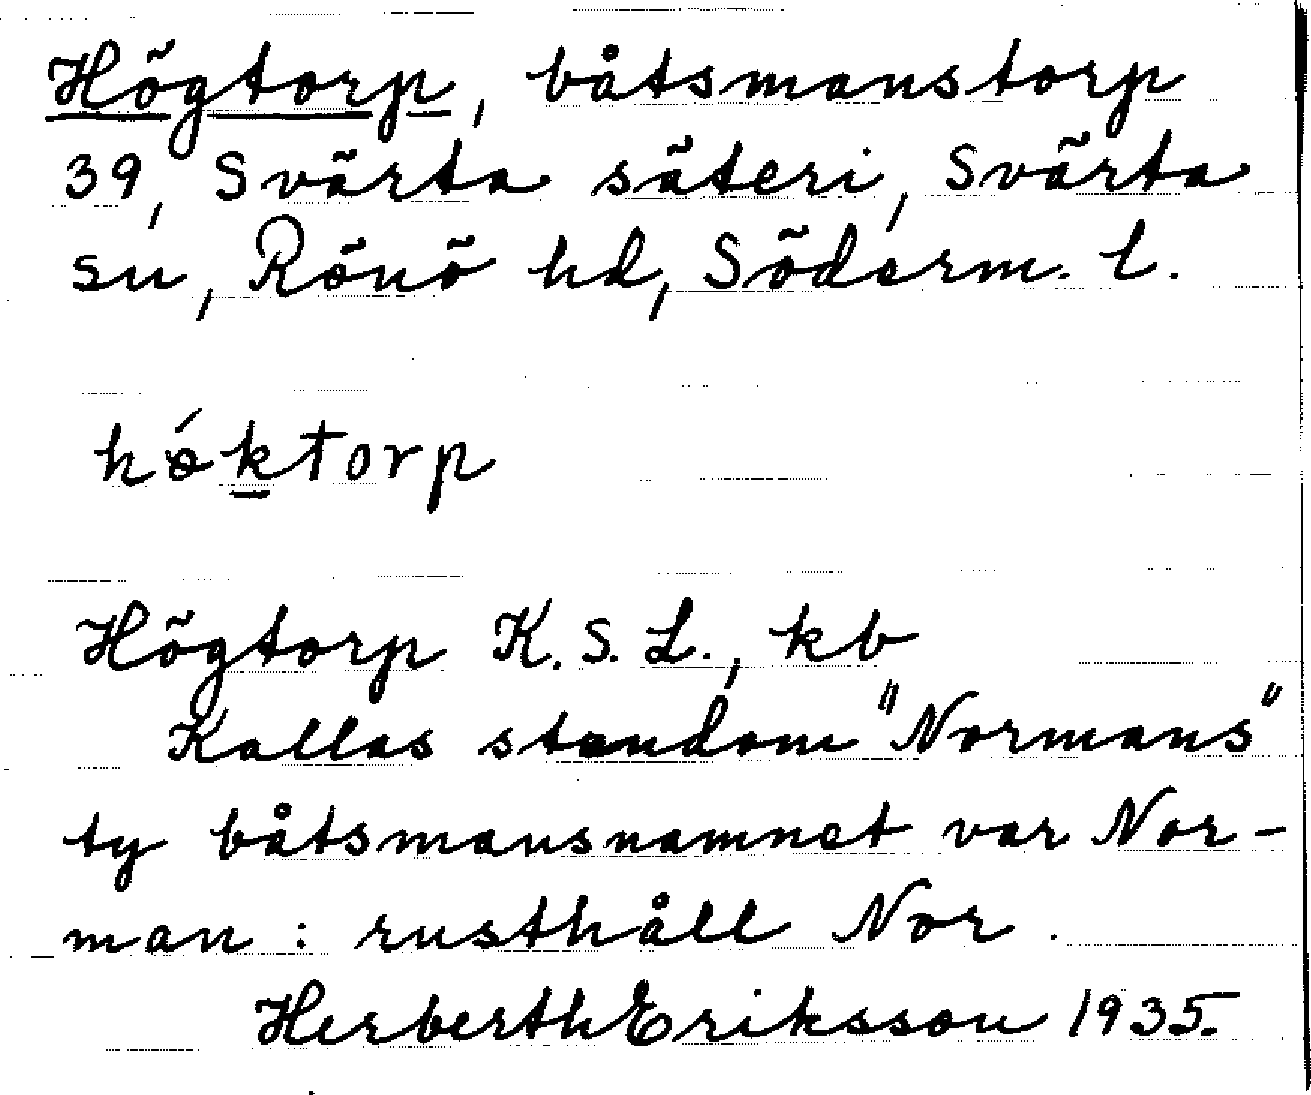 Högtorp, båtsmanstorp
39, Svärta säteri, Svärta
sn, Rönö hd, Söderm. l.
hǿktorp
Högtorp K. S. L., kb
Kallas stundom "Normans"
ty båtsmansnamnet var Nor-
man : rusthåll Nor.
Herberth Eriksson 1935.